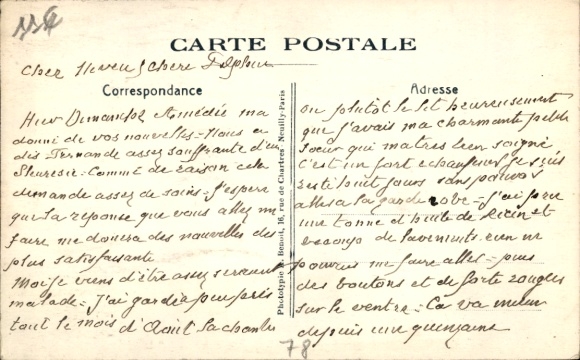 CARTE POSTALE
Cher Neveu & chère
Correspondance
Hier Dimanche Amédée m'a
donné de vos nouvelles - Nous a
dit - Fernande assez souffrante d'une
Pleurésie - Comme de raison cela
demande assez de soins - J'espère
que la réponse que vous allez me
faire me donnera des nouvelles des
plus satisfaisante
Moi je viens d'être assez sérieusement
malade - J'ai gardé à peu près
tout le mois d'Aout la chambre
Phototypie R. Benoit, 16, rue de Chartres Neuilly-Paris
Adresse
ou plutôt le lit heureusement
que j'avais ma charmante petite
soeur qui m'a très bien soigné
c'est un fort échauffement je suis
resté huit jours sans pouvoir
aller à la garde robe - j'ai pris
une tonne d'huile de Ricin et
de lavements rien ne
pouvais me faire aller - puis
des boutons et de forte rouges
sur le ventre - Ca va mieux
depuis une quinzaine
78